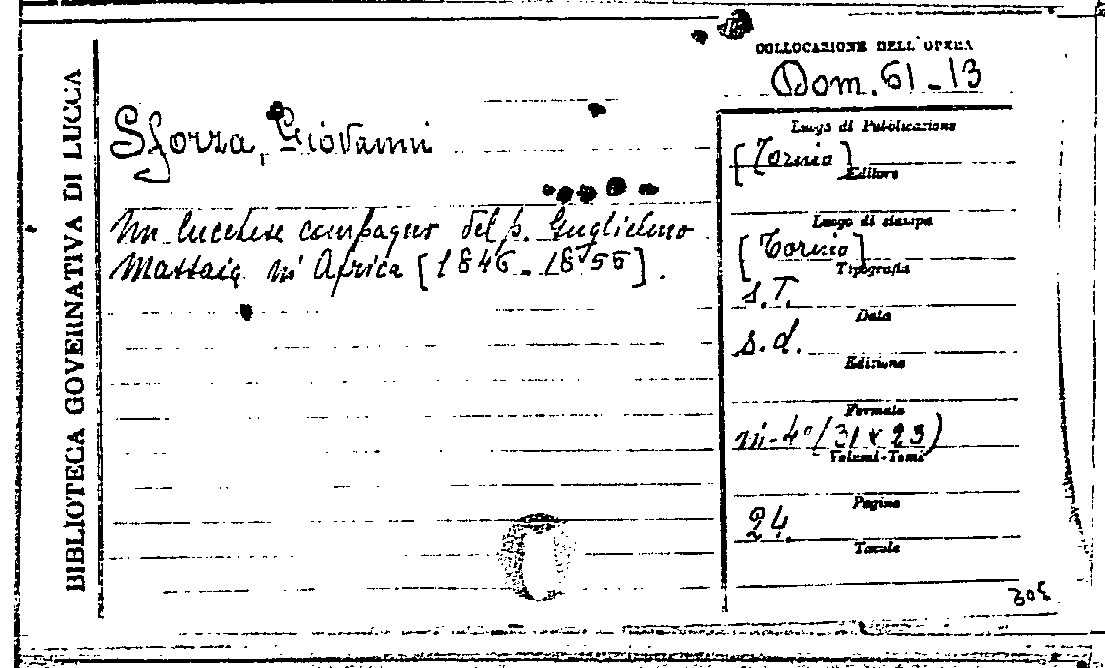 BIBLIOTECA GOVERNATIVA DI LUCCA
COLLOCAZIONE DELL'OPERA
Dom. 61-13
Sforza, Giovanni
Un lucchese compagno del p. Guglielmo
Massaia in Africa [1846-1855].
Luogo di Pubblicazione
[Torino]
Editore
Luogo di stampa
[Torino]
Tipografia
s.T.
Data
s.d.
Edizione
Formato
in-4° (31 x 23)
Volumi-Tomi
Pagine
24.
Tavole